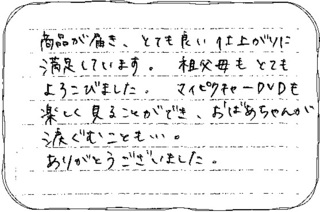 商品が届き、とても良い仕上がりに
満足しています。 祖父母もとても
よろこびました。 マイピクチャーDVDも
楽しく見ることができ、おばあちゃんが
涙ぐむことも…。
ありがとうございました。